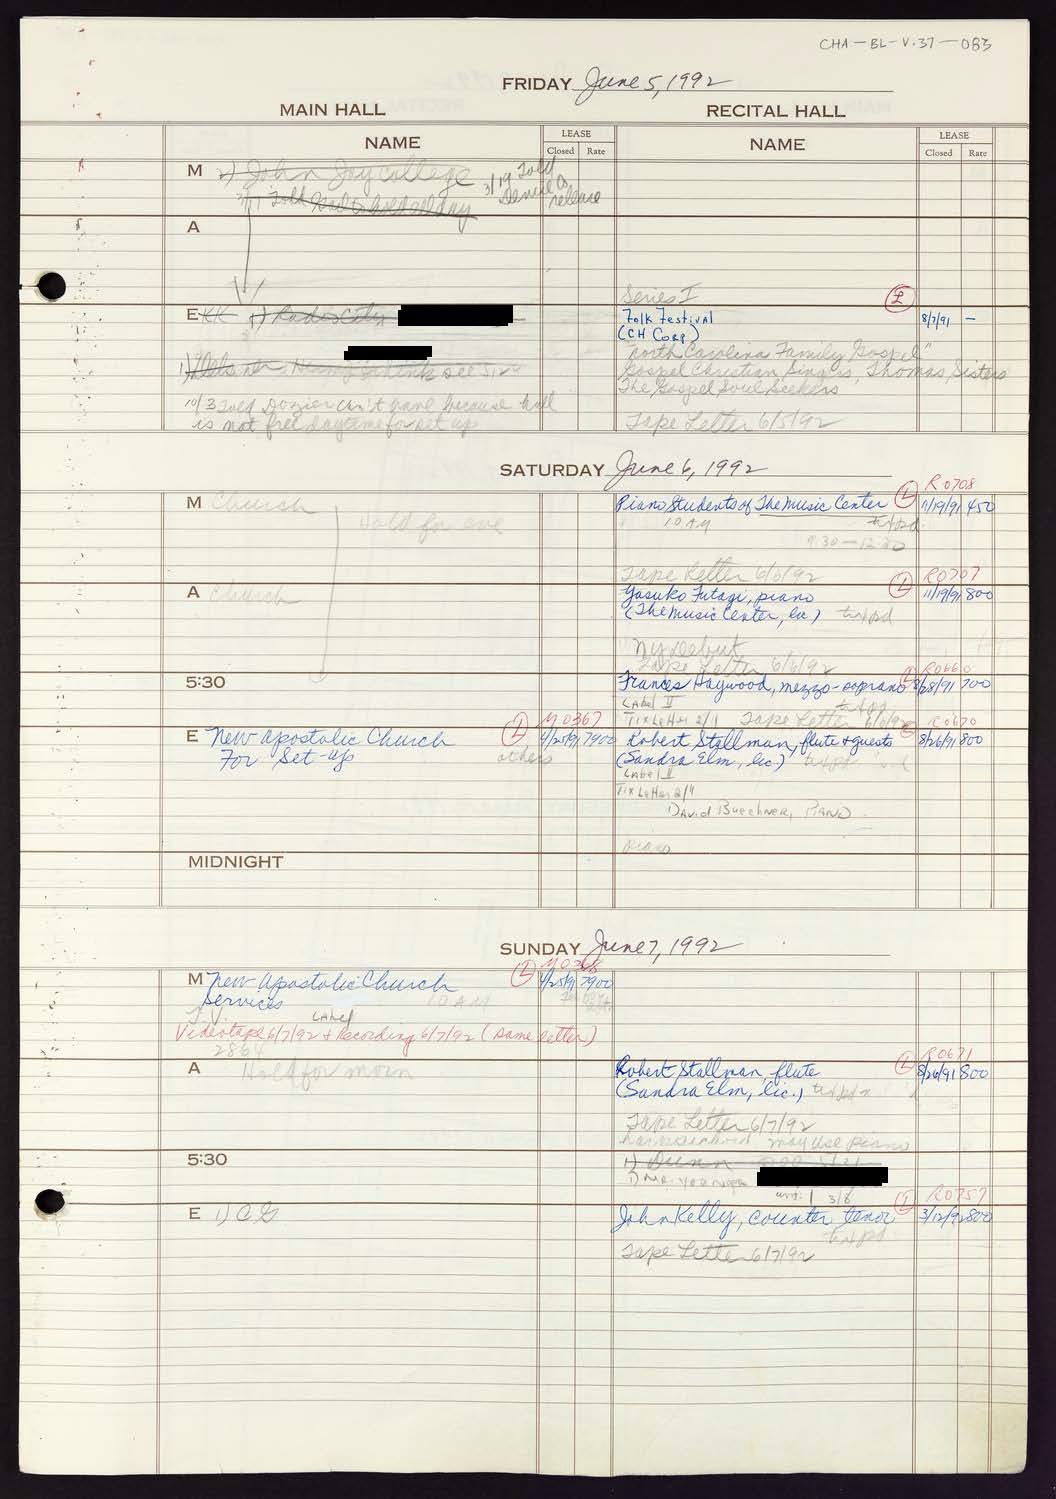 CHA-BL-V.37-083
FRIDAY June 5, 1992
MAIN HALL
RECITAL HALL
NAME
LEASE
Closed Rate
NAME
LEASE
Closed Rate
M 2) John Jay College
3/19 Told
Denise to
release
A
Series I
E KK 1) Radio City
L
Folk Festival 8/7/91 —
(CH Corp)
"North Carolina Family Gospel"
Gospel Christian Singers, Thomas Sisters
The Gospel Soul Seekers
10/3 Told Dozier can't have because hall
is not free daytime for set up
Tape Letter 6/5/92
SATURDAY June 6, 1992
R0708
M Church
Hold for eve
L
Piano Students of The Music Center 11/19/91 450
10 AM
9:30 - 12:30
Tape Letter 6/6/92
R0707
A Church
L
Yasuko Futagi, piano 11/19/91 800
(The Music Center, Inc.) txtpd
NY Debut
Tape Letter 6/6/92
R0660
5:30
L
Frances Haywood, mezzo-soprano 8/28/91 700
Label II
Tix Letter 2/1 Tape Letter 6/6/92
M0367
R0670
E New Apostolic Church L 4/25/91 7900
For Set-up
others
Robert Stallman, flute & guests 8/26/91 800
(Sandra Elm, lic.) txtpd
Label II
Tix Letter 2/4
David Buechner, Piano
piano
MIDNIGHT
SUNDAY June 7, 1992
M0368
M New Apostolic Church L 4/25/91 7900
Services 10 AM
T.V. Label
Videotape 6/7/92 & Recording 6/7/92 (same letter)
2864
R0671
A Hold for morn
L
Robert Stallman, flute 8/26/91 800
(Sandra Elm, lic.) txtpd
Tape Letter 6/7/92
harpsichord may use piano
5:30
1) Dunn
1) Mr.
3/6
R0757
E 1) CG
L
John Kelly, counter tenor 3/12/92 800
txtpd
Tape Letter 6/7/92